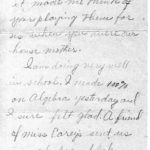 it made me think of
your playing them for
us when you were our
house mother.
I am doing very well
in school. I made 100%
on Algebra yesterday and
I sure felt glad. A friend
of Miss Carey's sent us